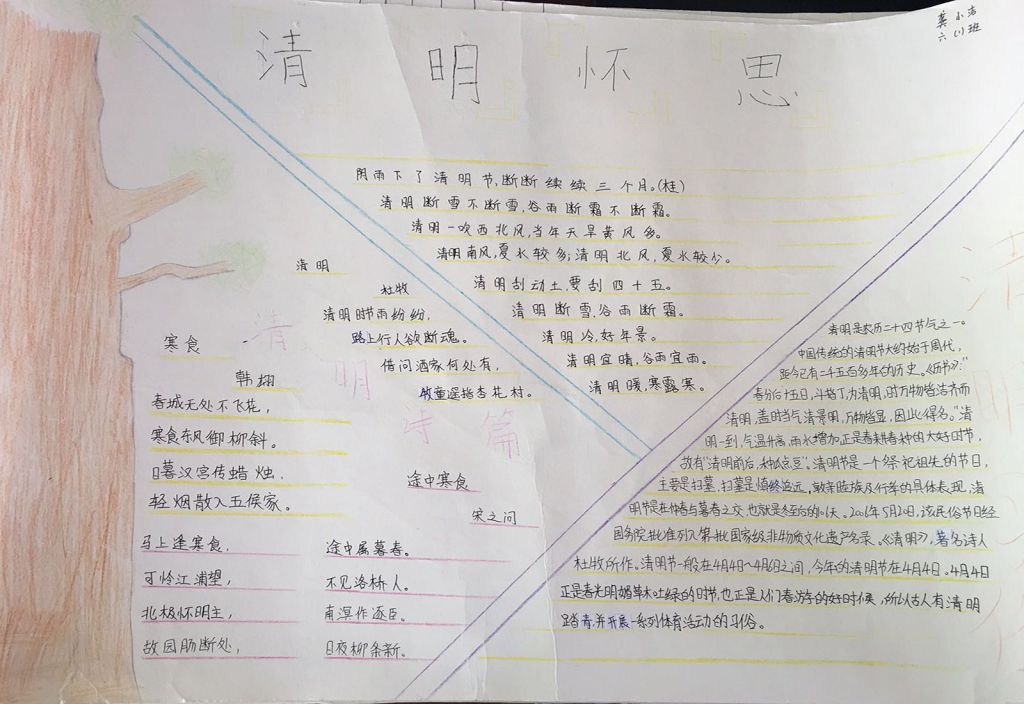 龚小洁
六(1)班
清明怀思
阴雨下了清明节,断断续续三个月。(桂)
清明断雪不断雪,谷雨断霜不断霜。
清明一吹西北风,当年天旱黄风多。
清明南风,夏水较多;清明北风,夏水较少。
清明刮动土,要刮四十五。
清明断雪,谷雨断霜。
清明冷,好年景。
清明宜晴,谷雨宜雨。
清明暖,寒露寒。
清明诗篇
清明
杜牧
清明时节雨纷纷,
路上行人欲断魂。
借问酒家何处有,
牧童遥指杏花村。
寒食
韩翃
春城无处不飞花,
寒食东风御柳斜。
日暮汉宫传蜡烛,
轻烟散入五侯家。
途中寒食
宋之问
马上逢寒食,途中属暮春。
可怜江浦望,不见洛桥人。
北极怀明主,南溟作逐臣。
故园肠断处,日夜柳条新。
清明是农历二十四节气之一。
中国传统的清明节大约始于周代,
距今已有二千五百多年的历史。《历书》:"
春分后十五日,斗指丁,为清明,时万物皆洁齐而
清明,盖时当气清景明,万物皆显,因此得名。"清
明一到,气温升高,雨水增加正是春耕春种的大好时节,
故有"清明前后,种瓜点豆"。清明节是一个祭祀祖先的节日,
主要是扫墓,扫墓是慎终追远,敦亲睦族及行孝的具体表现,清
明节是在仲春与暮春之交,也就是冬至后的108天。2006年5月20日,该民俗节日经
国务院批准列入第一批国家级非物质文化遗产名录。《清明》,著名诗人
杜牧所作。清明节一般在4月4日~4月6日之间,今年的清明节在4月4日。4月4日
正是春光明媚草木吐绿的时节,也正是人们春游的好时候,所以古人有清明
踏青,并开展一系列体育活动的习俗。